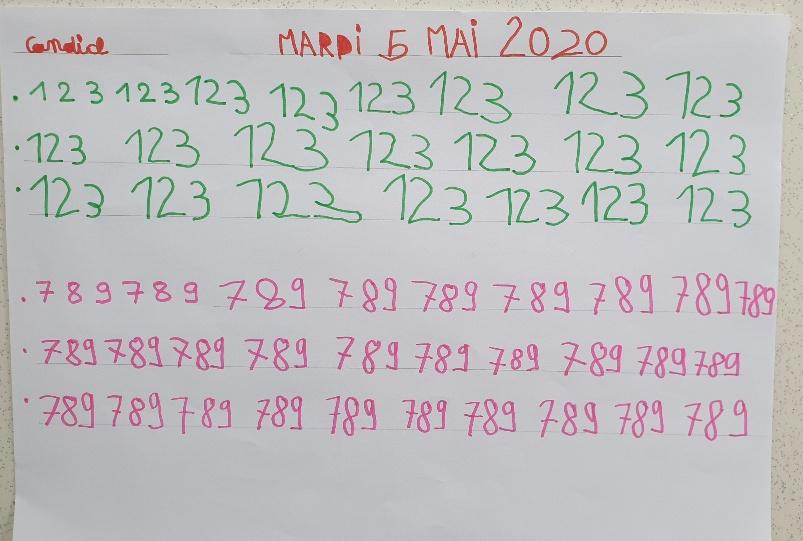 Candice MARDi 5 MAi 2020
. 1 2 3 123 123 123 123 123 123 123
. 123 123 123 123 123 123 123
. 123 123 123 123 123 123 123
. 7 8 9 7 8 9 789 789 789 789 789 789 789
. 789 789 789 789 789 789 789 789 789 789
. 789 789 789 789 789 789 789 789 789 789